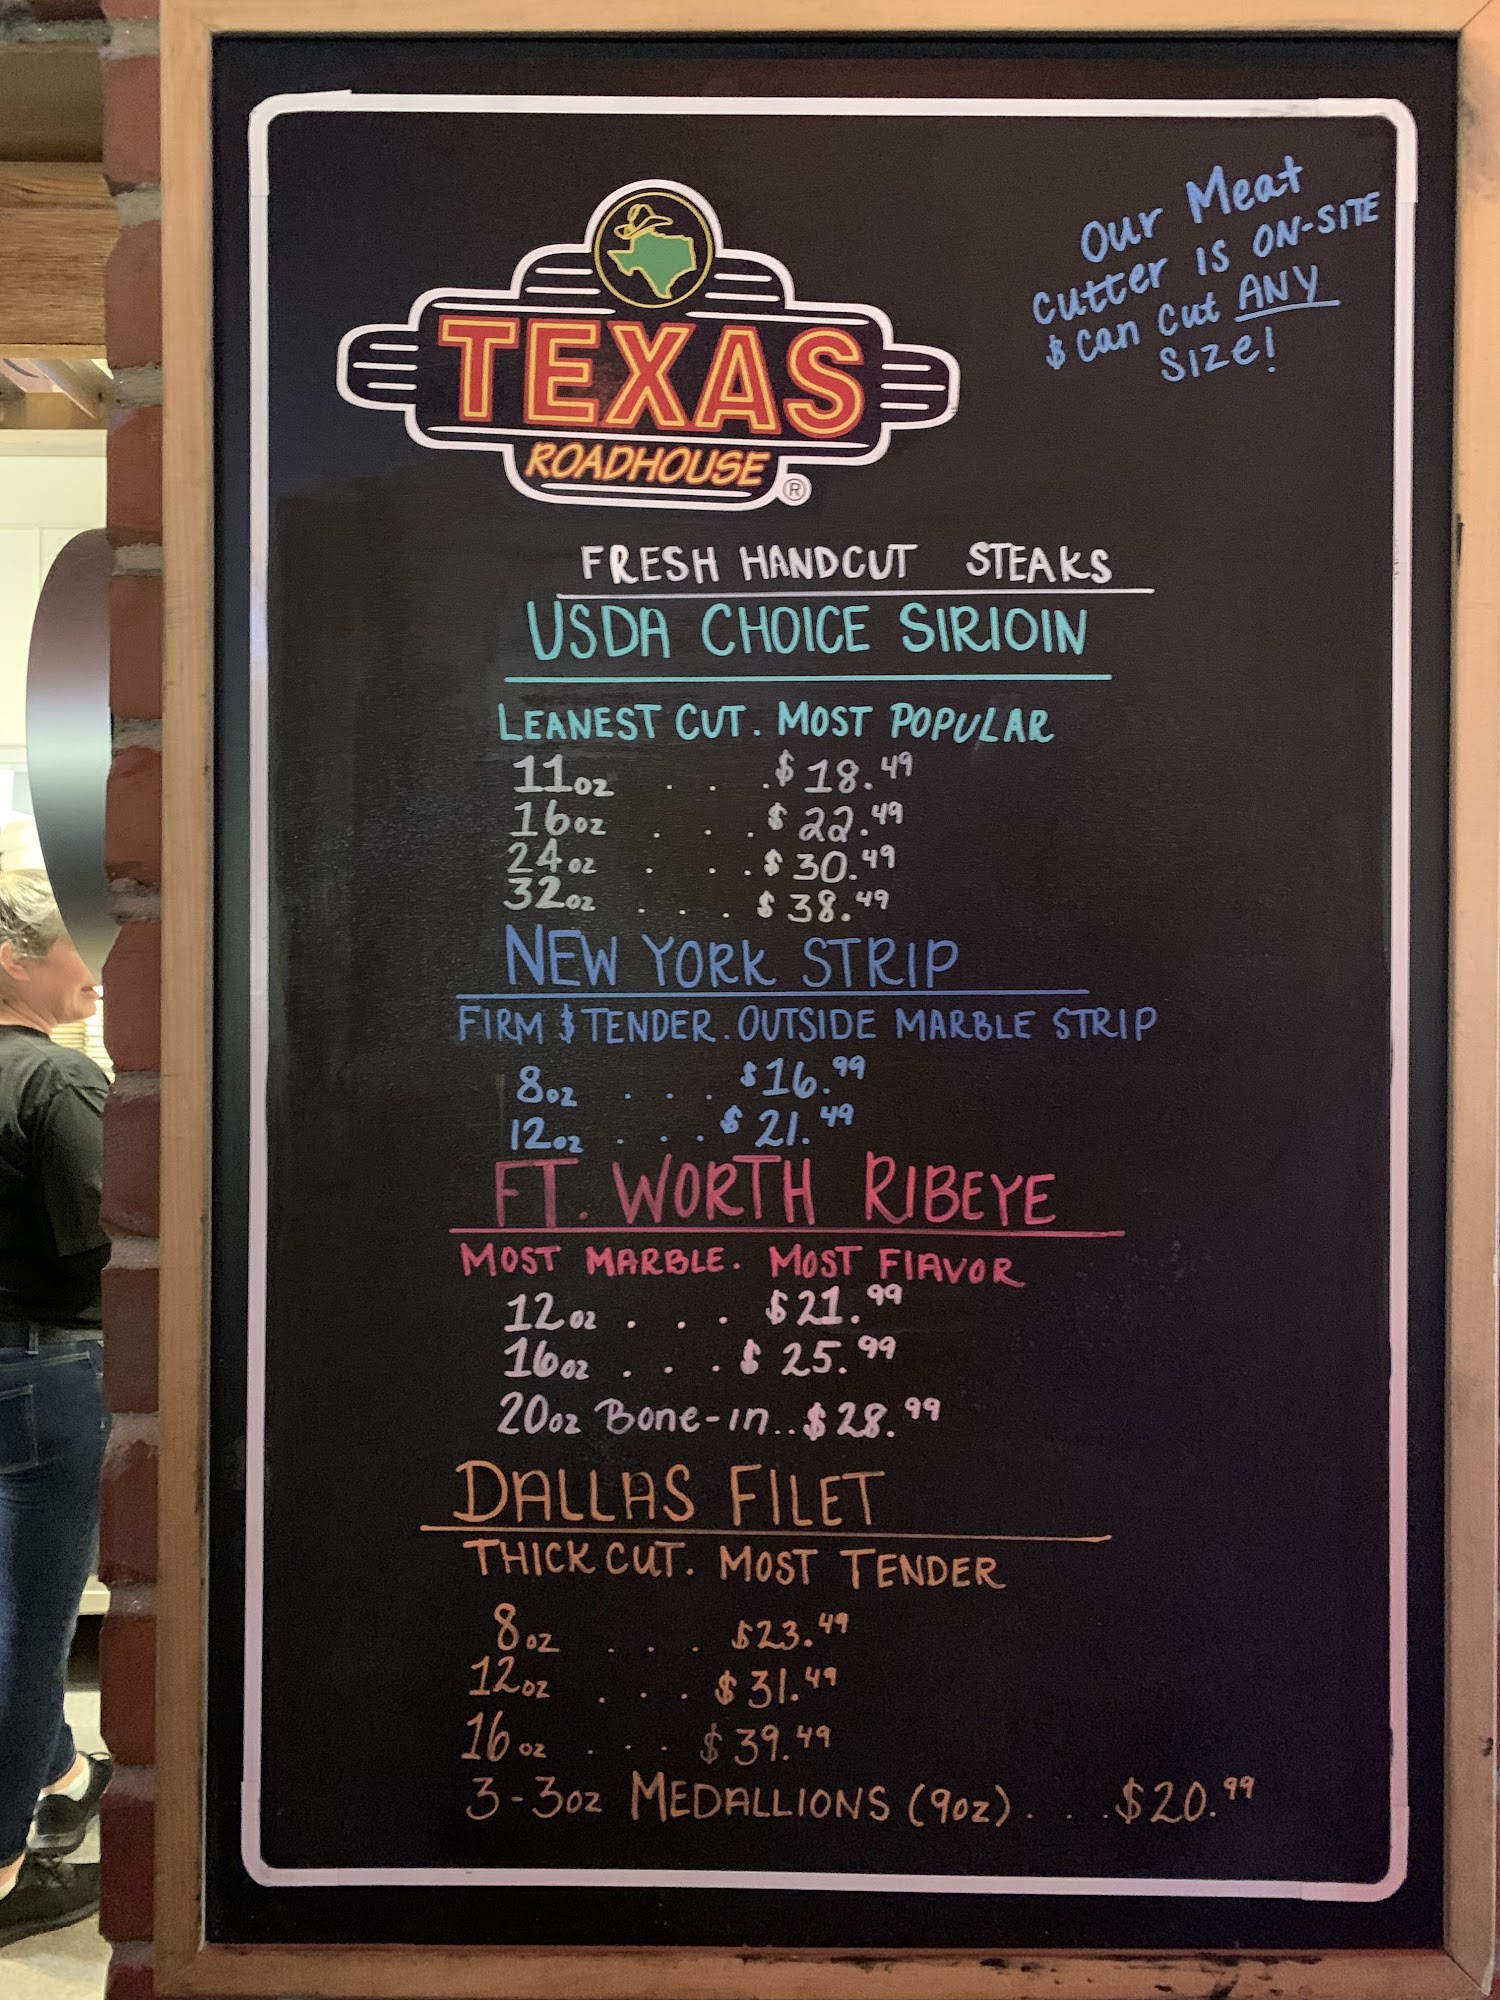 Our Meat
cutter is ON-SITE
& can cut ANY
Size!
TEXAS
ROADHOUSE
®
FRESH HANDCUT STEAKS
USDA CHOICE SIRlOIN
LEANEST CUT. MOST POPULAR
11oz . . . $18.49
16oz . . . $22.49
24oz . . . $30.49
32oz . . . $38.49
NEW YORK STRIP
FIRM & TENDER. OUTSIDE MARBLE STRIP
8oz . . . $16.99
12oz . . . $21.49
FT. WORTH RIBEYE
MOST MARBLE. MOST FlAVOR
12oz . . . $21.99
16oz . . . $25.99
20oz Bone-in..$28.99
DALLAS FILET
THICK CUT. MOST TENDER
8oz . . . $23.49
12oz . . . $31.49
16oz . . . $39.49
3-3oz MEDALLIONS (9oz) . . . $20.99